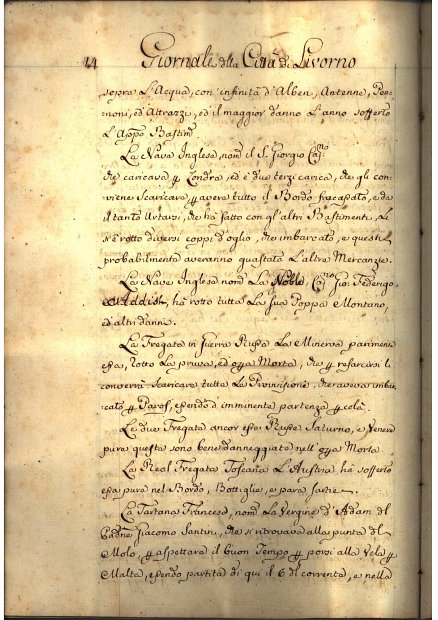 14 Giornale della Città di Livorno
sopra L'Acqua, con infinità d'Alberi, Antenne, Pen-
noni, ed Attrazzi, ed il maggior danno L'anno sofferto
L'Appo Bastimti
La Nave Inglese, nomta il S. Giorgio Capno
che caricava per Londra, ed è due terzi carica, che gli con-
viene Scaricare per avere tutto il Bordo fracassato, e da
il tanto Urtarsi, che ha fatto con gl'altri Bastimenti, Li
si è rotto diversi coppi d'oglio, che imbarcato, e questi
probabilmente averanno guastato L'altre Mercanzie.
La Nave Inglese nomta La Noble, Capno Gio: Federigo
ha rotto tutta La sua Poppa Montano,
ed altri danni.
La Fregata in guerra Russa La Minerva parimente
essa, rotto La prua, ed opra Morta, che per refarcirsi li
converrà Scaricare tutte Le Provvisioni, che aveva imbar-
cato per Paros, essendo d'imminente partenza per colà.
Le due Fregate ancor esse Russe Saturno, e Venere
pure queste sono bene danneggiate nell'opra Morta
La Real Fregata Toscana L'Austria ha sofferto
essa pure nel Bordo, Bottiglie, e para sartie
La Tartana Francese, nomta La Vergine d'Adam del
Padne Giacomo Santin, che si ritrovava alla punta del
Molo, per aspettare il buon Tempo per porsi alla Vela per
Malta, essendo partita di qui il 6 del corrente, e nella